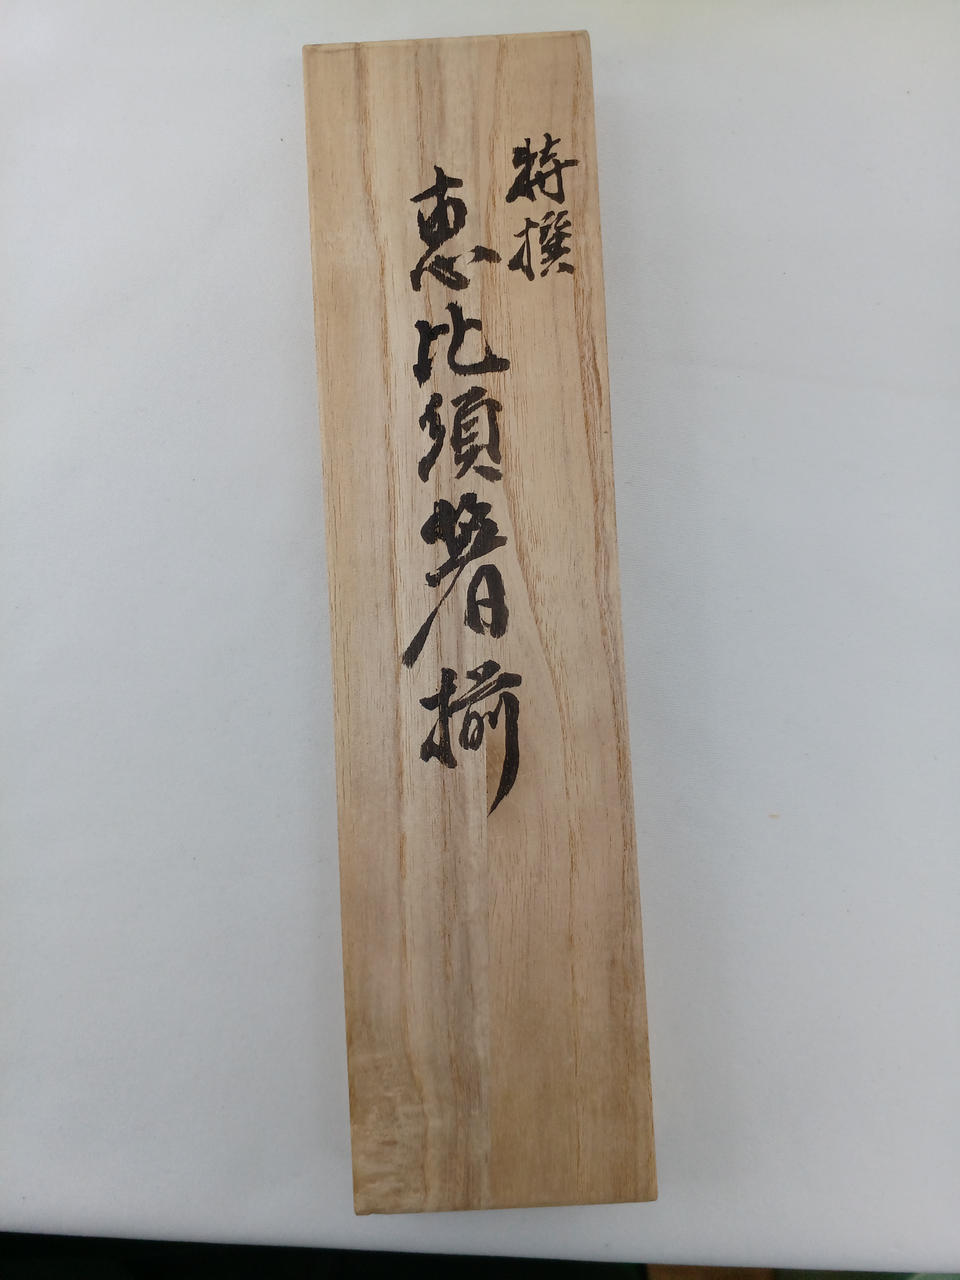 特撰
恵比須箸揃